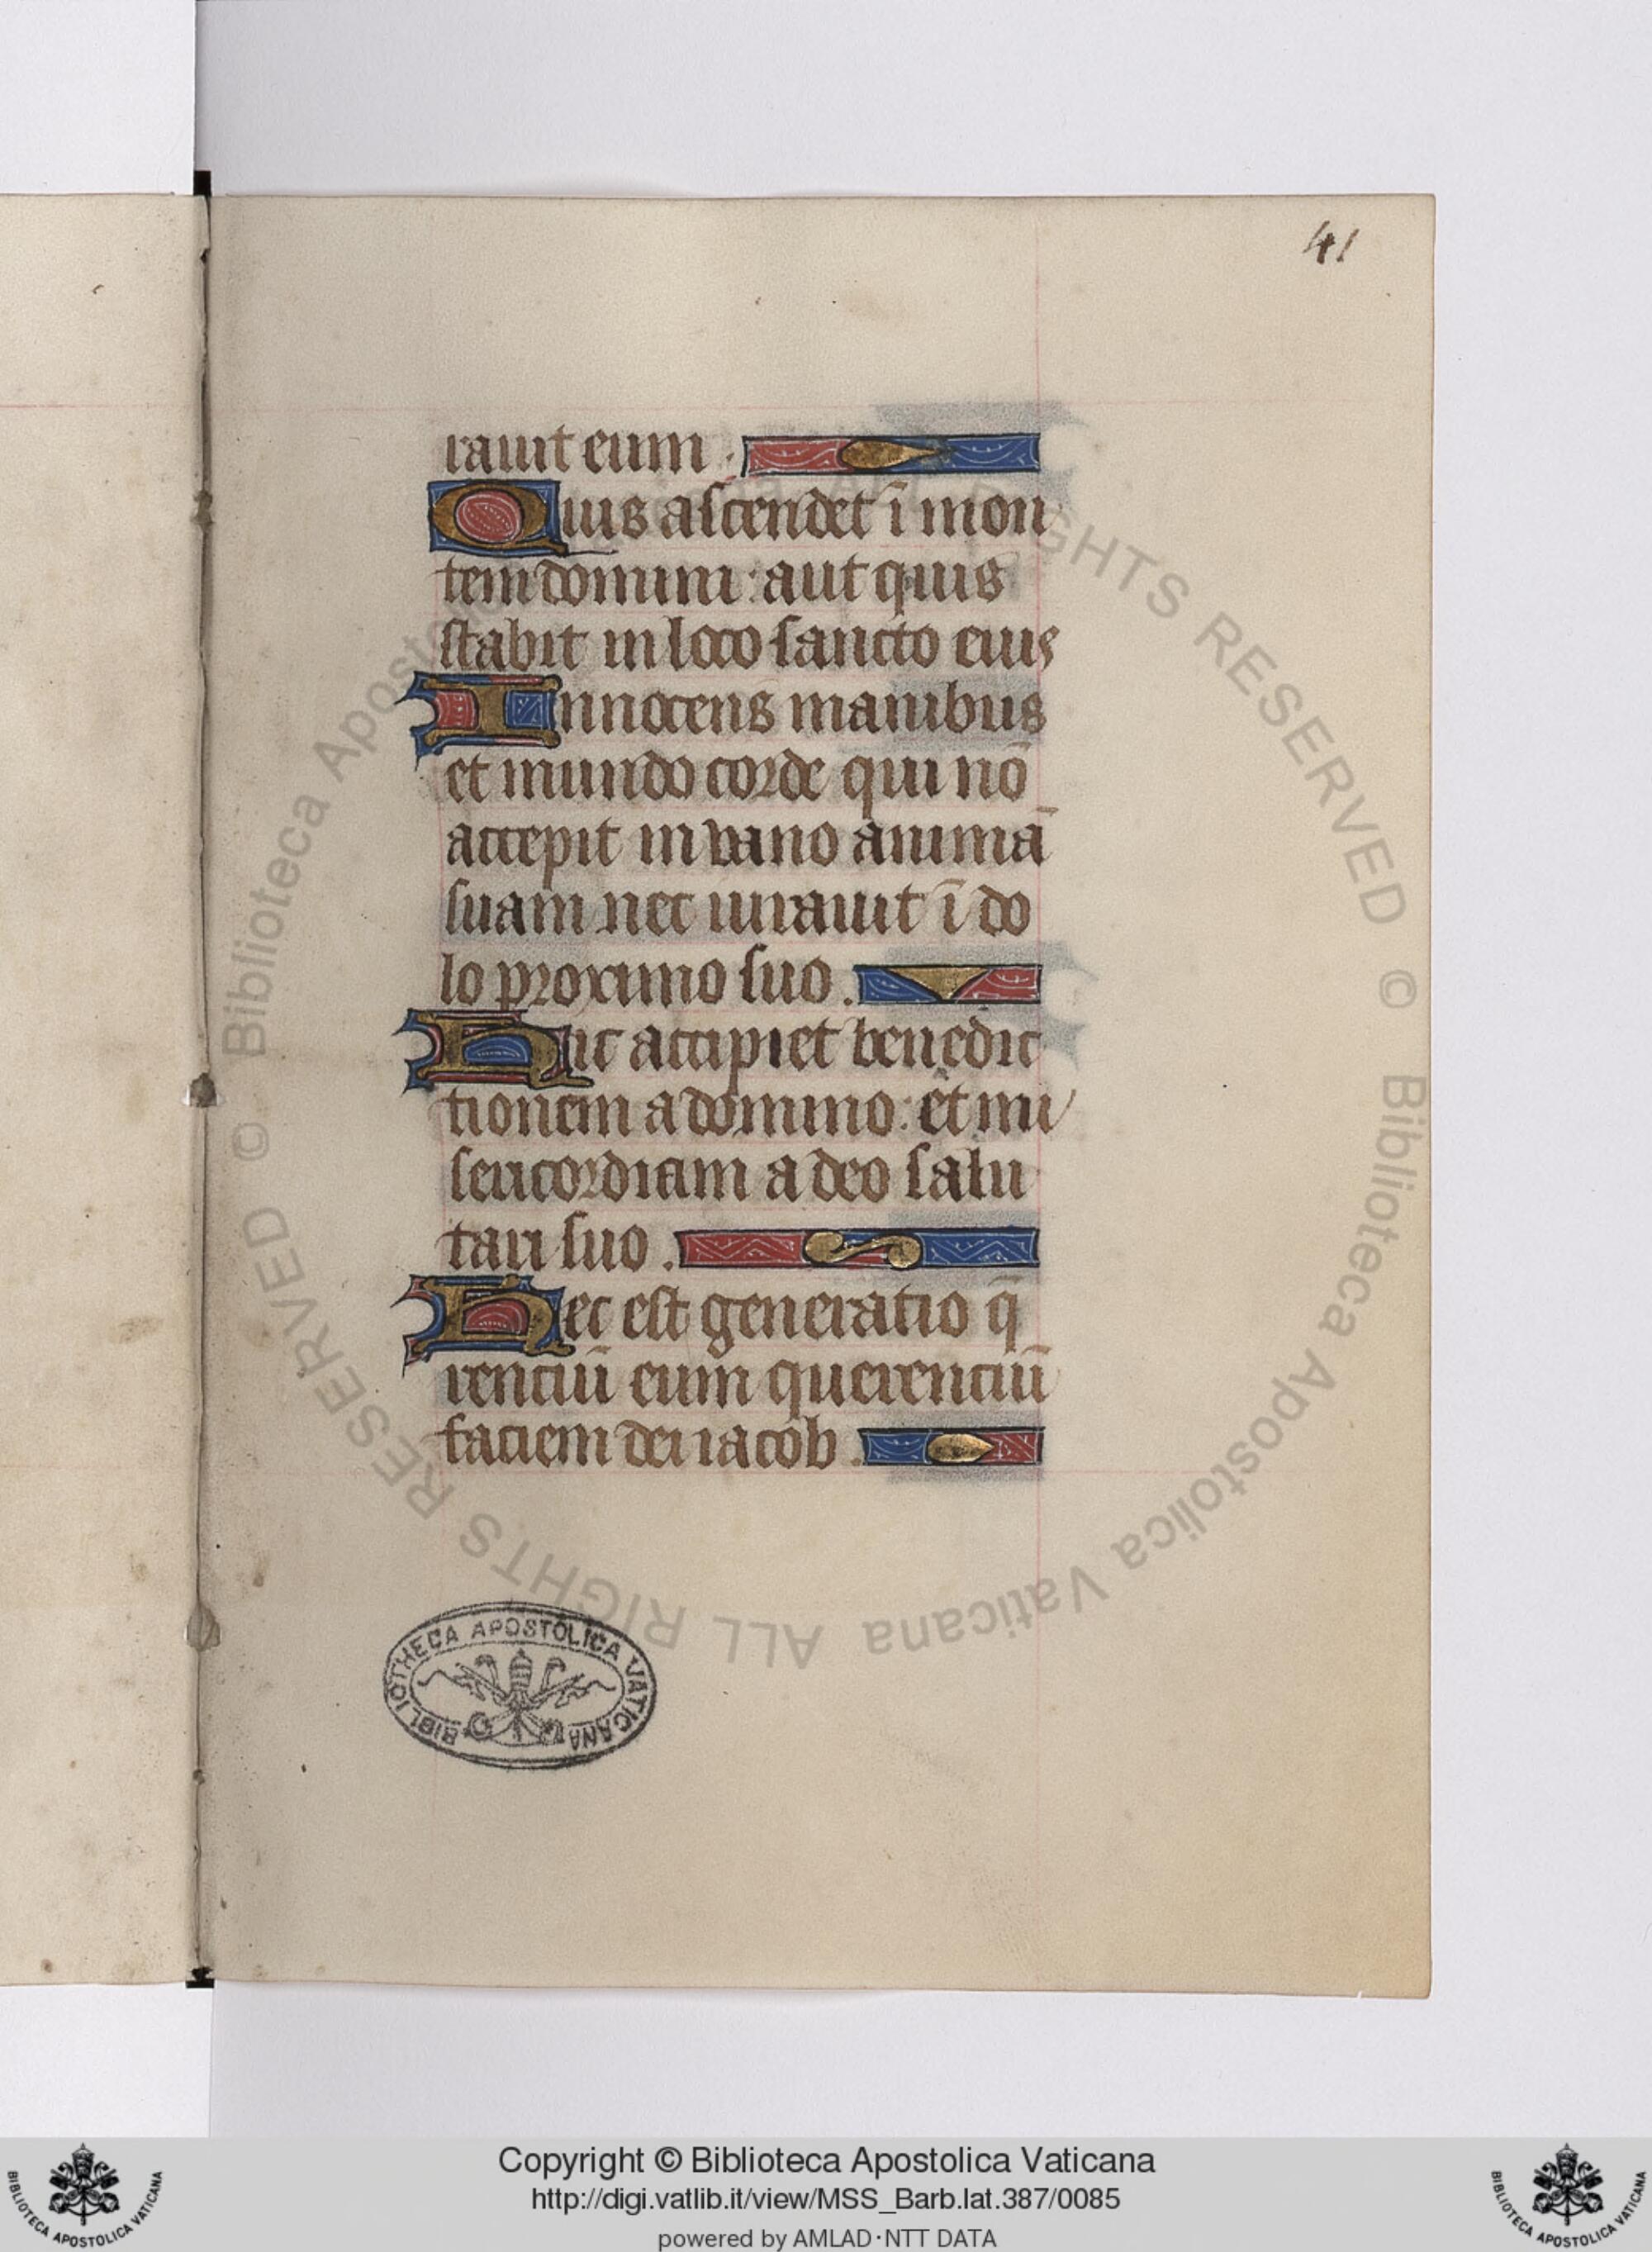 41
rauit eum .
Quis ascendet ī mon
tem domini : aut quis
stabit in loco sancto eius
Innocens manibus
et mundo corde qui nō
accepit in vano animā
suam nec iurauit ī do
lo proximo suo .
Hic accipiet benedic
tionem a domino : et mi
sericordiam a deo salu
tari suo .
Hec est generatio q̄
renciū eum querenciū
faciem dei iacob .
BIBLIOTHECA APOSTOLICA VATICANA
© Biblioteca Apostolica Vaticana ALL RIGHTS RESERVED © Biblioteca Apostolica Vaticana ALL RIGHTS RESERVED
Copyright © Biblioteca Apostolica Vaticana
http://digi.vatlib.it/view/MSS_Barb.lat.387/0085
powered by AMLAD·NTT DATA
BIBLIOTECA APOSTOLICA VATICANA
BIBLIOTECA APOSTOLICA VATICANA